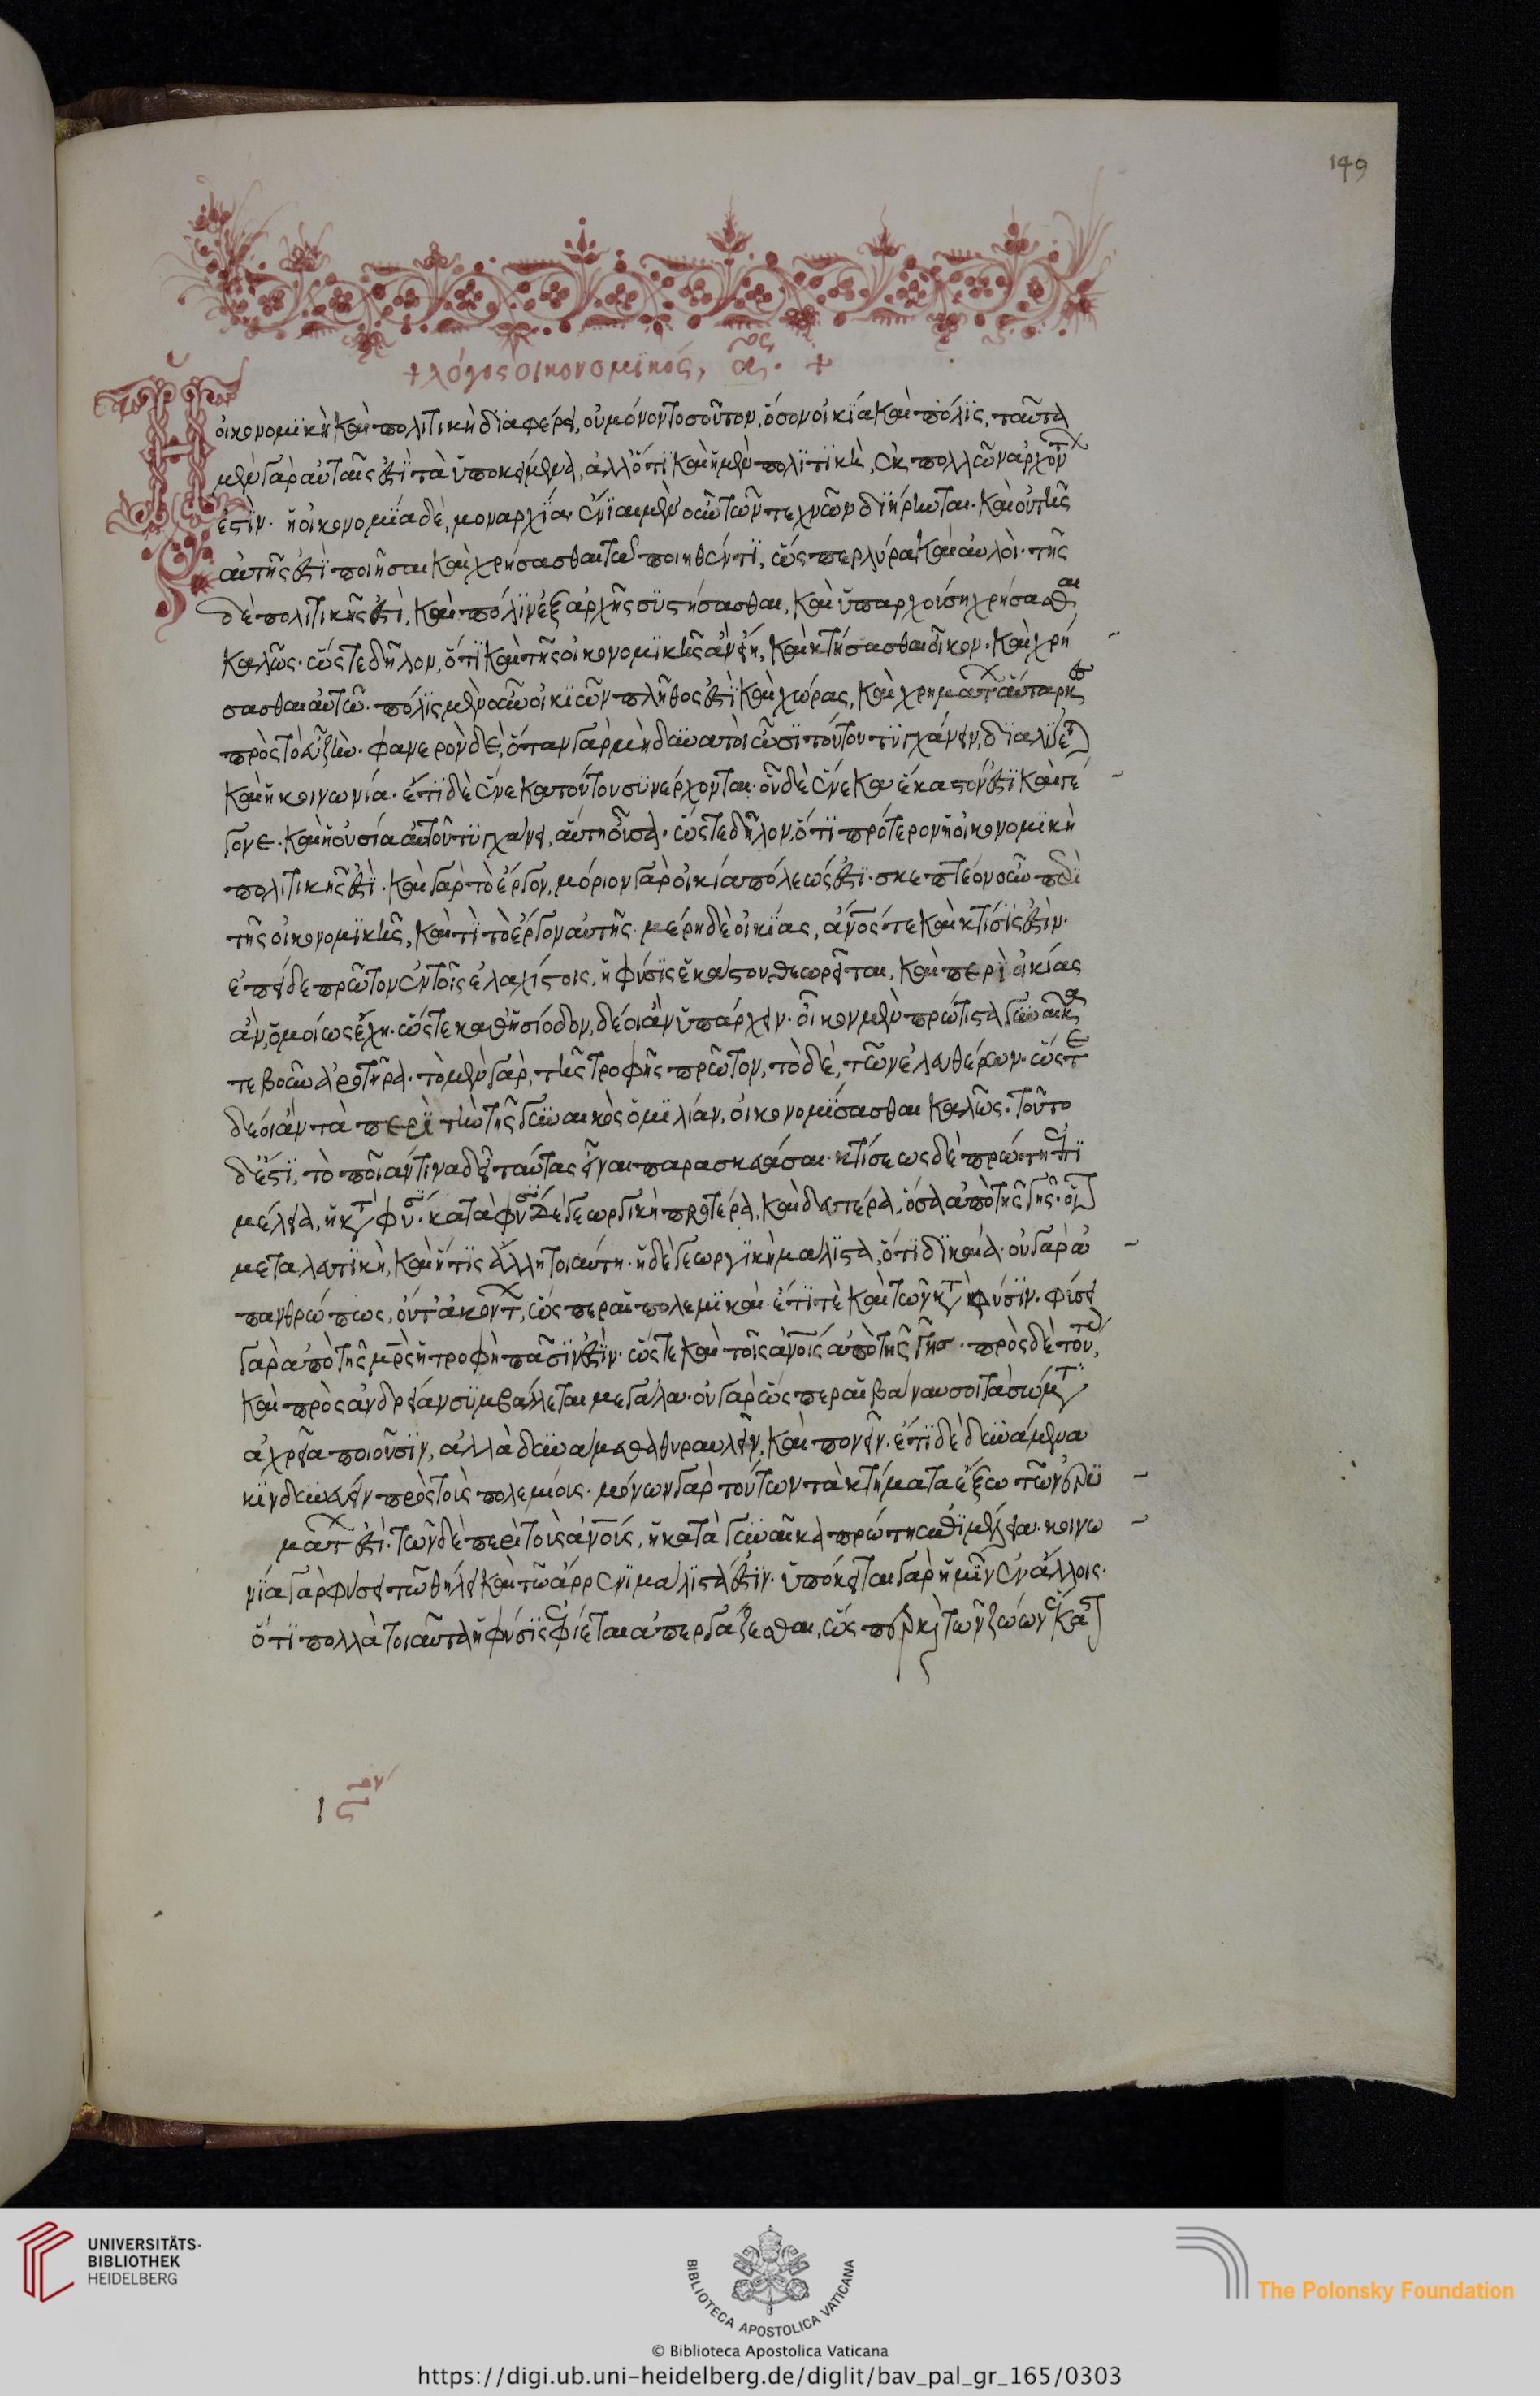 149
+ λόγος οἰκονομϊκός, α^ος. +
Η
οἰκονομϊκὴ καὶ πολιτικὴ διαφέρει, οὐ μόνον τοσοῦτον, ὅσον οἰκία καὶ πόλις, ταῦτα
μὲν γὰρ αὐταῖς ἐστὶ τὰ ὑποκείμενα, ἀλλ' ὅτι καὶ ἡ μὲν πολιτικὴ, ἐκ πολλῶν ἀρχόντων
ἐστὶν. ἡ οἰκονομία δὲ, μοναρχία. ἔνιαι μὲν οὖν τῶν τεχνῶν διήρηνται. καὶ οὐ τῆς
αὐτῆς ἐστὶ ποιῆσαι καὶ χρήσασθαι τῶ ποιηθέντι, ὥσπερ λύρα καὶ αὐλοὶ. τῆς
δὲ πολιτικῆς ἐστὶ, καὶ πόλιν ἐξ ἀρχῆς συστήσασθαι, καὶ ὑπαρχούση χρήσασθαι
καλῶς. ὥστε δῆλον, ὅτι καὶ τῆς οἰκονομικῆς ἂν εἴη, καὶ κτήσασθαι οἶκον. καὶ χρή
σασθαι αὐτῶ. πόλις μὲν οὖν οἰκιῶν πλῆθός ἐστι καὶ χώρας, καὶ χρημάτων αὔταρκες
πρὸς τὸ εὖ ζῆν. φανερὸν δὲ, ὅταν γὰρ μὴ δυνατοὶ ὦσι τούτου τυγχάνειν, διαλύεται
καὶ ἡ κοινωνία. ἔτι δὲ ἕνεκα τούτου συνέρχονται. οὗ δὲ ἕνεκα ἕκαστόν ἐστι καὶ γέ
γονε. καὶ ἡ οὐσία αὐτοῦ τυγχάνει, αὕτη οὖσα. ὥστε δῆλον, ὅτι πρότερον ἡ οἰκονομϊκὴ
πολιτικῆς ἐστὶ. καὶ γὰρ τὸ ἔργον, μόριον γὰρ οἰκία πόλεώς ἐστι. σκεπτέον οὖν περὶ
τῆς οἰκονομικῆς, καὶ τί τὸ ἔργον αὐτῆς. μέρη δὲ οἰκίας, ἄνος τε καὶ κτίσις ἐστὶν.
ἐπεὶ δὲ πρῶτον ἐν τοῖς ἐλαχίστοις, ἡ φύσις ἑκάστου θεωρεῖται, καὶ περὶ οἰκίας
ἂν, ὁμοίως ἔχη. ὥστε καθ' ἡσίοδον, δέοι ἂν ὑπάρχειν. οἶκον μὲν πρώτιστα γυναῖκα
τε βοῦν ἀροτῆρα. τὸ μὲν γὰρ, τῆς τροφῆς πρῶτον, τὸ δὲ, τῶν ἐλευθέρων. ὥστε
δέοι ἂν τὰ περὶ τὴν τῆς γυναικὸς ὁμιλίαν, οἰκονομίσασθαι καλῶς. τοῦτο
δέ ἐστι, τὸ ποίαν τινα δεῖ ταύτας εἶναι παρασκευάσαι. κτίσεως δὲ πρώτη ἐπι
μέλεια, ἡ κτ φύσιν. κατὰ φύσιν δὲ γεωργικὴ προτέρα, καὶ δευτέρα, ὅσα ἀπὸ τῆς γῆς. οἷον
μεταλευτικὴ, καὶ ἥτις ἄλλη τοιαύτη. ἡ δὲ γεωργικὴ μάλιστα, ὅτι δικαία. οὐ γὰρ ἀ
πανθρώπως, οὔτ' ἀκόντων, ὥσπερ αἱ πολεμικαὶ. ἔτι τὲ καὶ τῶν κτ φύσιν. φύσει
γὰρ ἀπὸ τῆς μρς ἡ τροφὴ πᾶσιν ἐστὶν. ὥστε καὶ τοῖς ἀνοις ἀπὸ τῆς γῆς. πρὸς δὲ τούτοις,
καὶ πρὸς ἀνδρείαν συμβάλλεται μεγάλα. οὐ γὰρ ὥσπερ αἱ βάναυσοι τὰ σώματα
ἀχρεῖα ποιοῦσιν, ἀλλὰ δυνάμενα θυραυλεῖν, καὶ πονεῖν. ἔτι δὲ δυνάμενα
κινδυνεύειν πρὸς τοὺς πολεμίους. μόνων γὰρ τούτων τὰ κτήματα ἔξω τῶν ἐρυ
μάτων ἐστὶ. τῶν δὲ περὶ τοὺς ἀνους, ἡ κατὰ γυναῖκα πρώτη ἐπιμέλεια. κοινω
νία γὰρ φύσει τῶ θήλει καὶ τῶ ἄρρενι μάλιστά ἐστιν. ὑπόκειται γὰρ ἡμῖν ἐν ἄλλοις.
ὅτι πολλὰ τοιαῦτα ἡ φύσις ἐφίεται ἀπεργάζεσθαι, ὥσπερ καὶ τῶν ζώων ἕκαστον
UNIVERSITÄTS-
BIBLIOTHEK
HEIDELBERG
BIBLIOTECA APOSTOLICA VATICANA
The Polonsky Foundation
© Biblioteca Apostolica Vaticana
https://digi.ub.uni-heidelberg.de/diglit/bav_pal_gr_165/0303